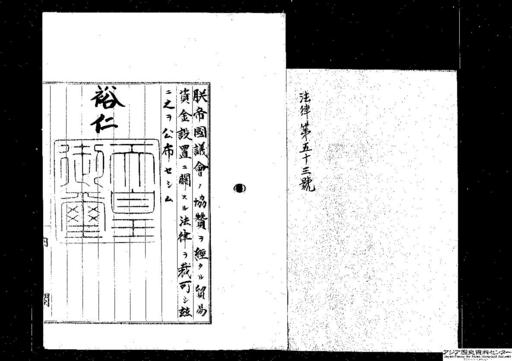 法律第五十三號
朕帝國議會ノ協贊ヲ經タル貿易
資金設置ニ關スル法律ヲ裁可シ茲
ニ之ヲ公布セシム
裕仁
天皇
御璽
内閣
アジア歴史資料センター